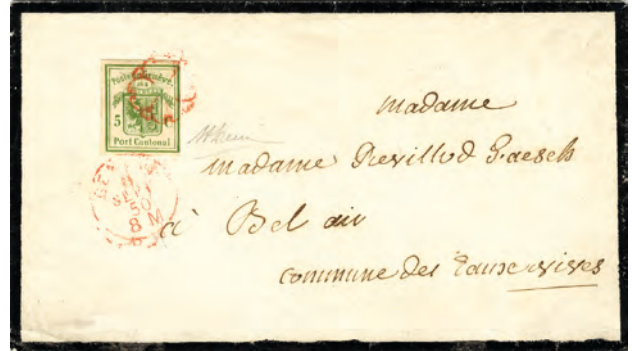 Poste de Genève.
5 C.
Port Cantonal
SEPT
50
8 M
madame
madame Revilliod
à Bel air
commune des Eauxe vives